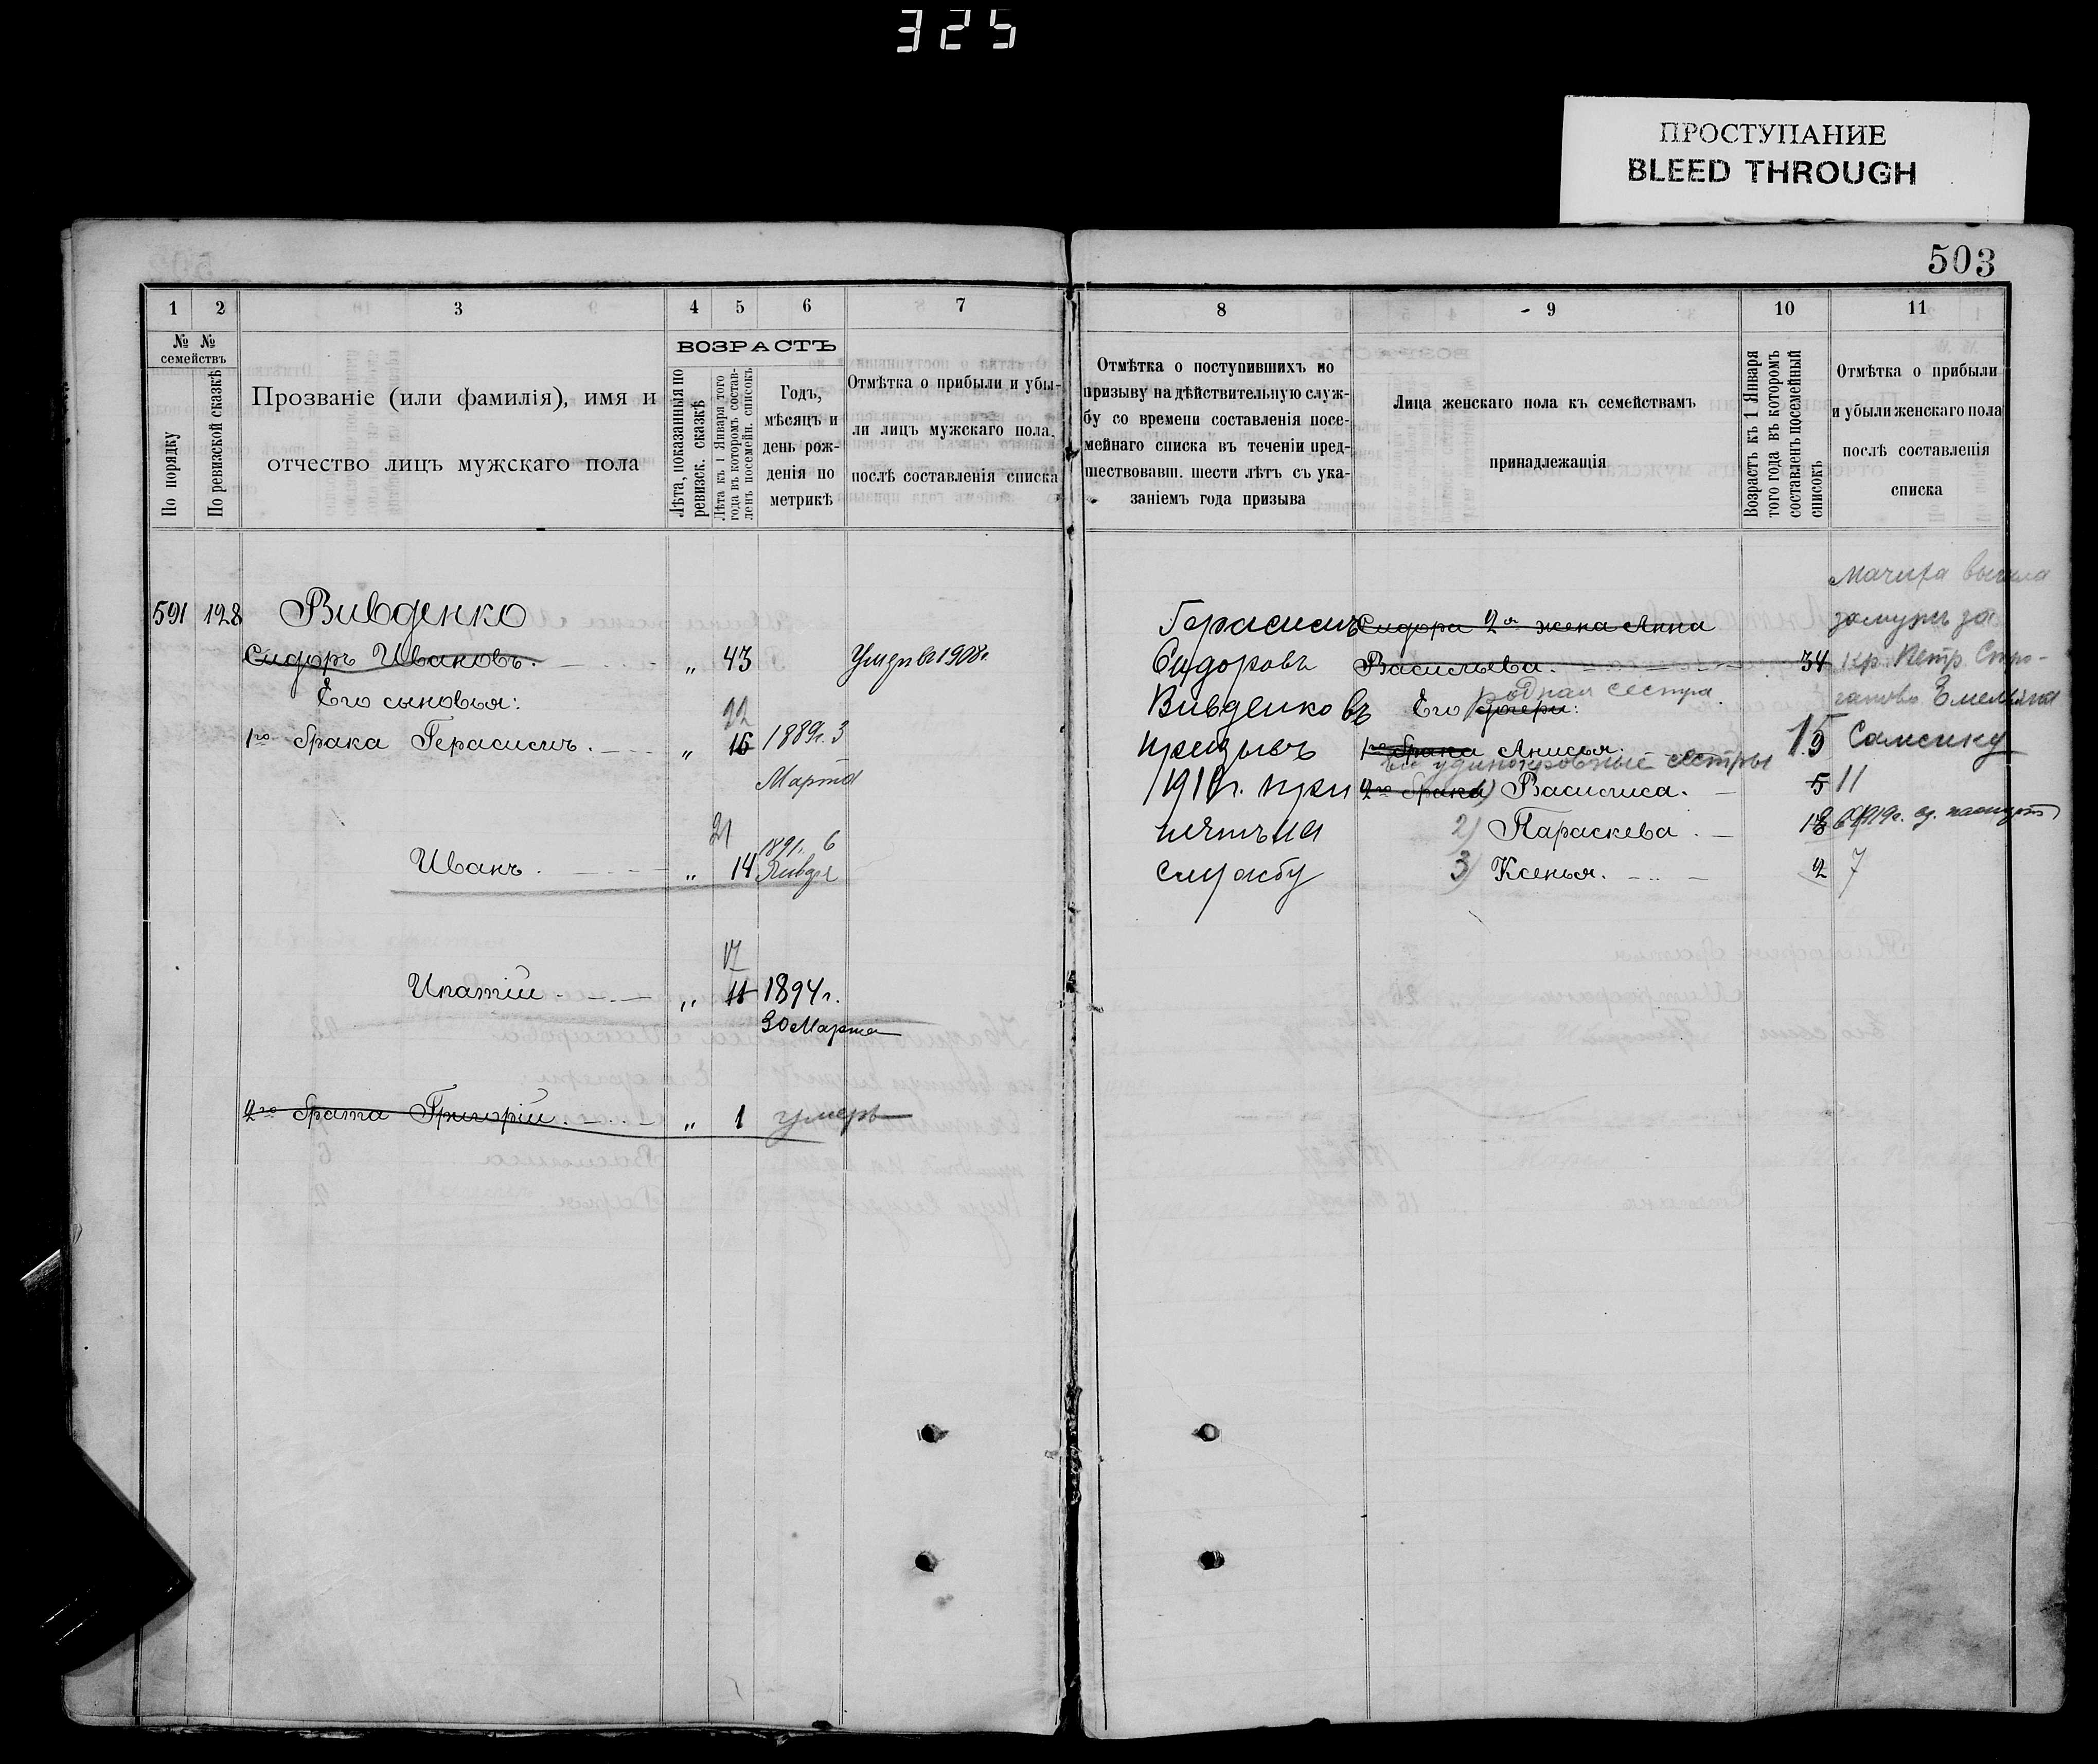 325
ПРОСТУПАНИЕ
BLEED THROUGH
503
1 2 3 4 5 6 7
№ № семействъ
По порядку
По ревизской сказкѣ
Прозваніе (или фамилія), имя и
отчество лицъ мужскаго пола
ВОЗРАСТЪ
Лѣта, показанныя по
ревизск. сказкѣ
Лѣта къ 1 Января того
года въ которомъ состав-
ленъ посемейн. списокъ
Годъ,
мѣсяцъ и
день рож-
денія по
метрикѣ
Отмѣтка о прибыли и убы-
ли лицъ мужского пола,
послѣ составленія списка
591 128 Вивденко
Сидоръ Ивановъ. „ 43 Умеръ въ 1908 г.
Его сыновья:
22
1го брака Герасимъ. „ 16 1889 г. 3
Марта
21
1891. 6
Иванъ. „ 14 Январ
17
Ипатій „ 11 1894 г.
30 Марта
2го брата Григорій. „ 1 умеръ
8 9 10 11
Отмѣтка о поступившихъ по
призыву на дѣйствительную служ-
бу со времени составленія посе-
мейнаго списка въ теченіи пред-
шествовавш. шести лѣтъ съ ука-
заніемъ года призыва
Лица женскаго пола къ семействамъ
принадлежащія
Возрастъ къ 1 Января
того года въ которомъ
составленъ посемейный
списокъ
Отмѣтка о прибыли
и убыли женскаго пола
послѣ составленія
списка
Герасимъ
Сидоровъ
Вивденковъ
призывъ
1910 г. при
нятъ на
службу
Сидора 2я жена Анна
Васильева. 34
Его дочери: родная сестра
1го брака Анисья. 9 15
Ея единокровные сестры
2го брака 1) Василиса. 5 11
2) Параскева. 3
3) Ксенья. 2 7
Мачиха вышла
замужъ за
кр. Петр. Стро-
ганово Емельяна
Саменку